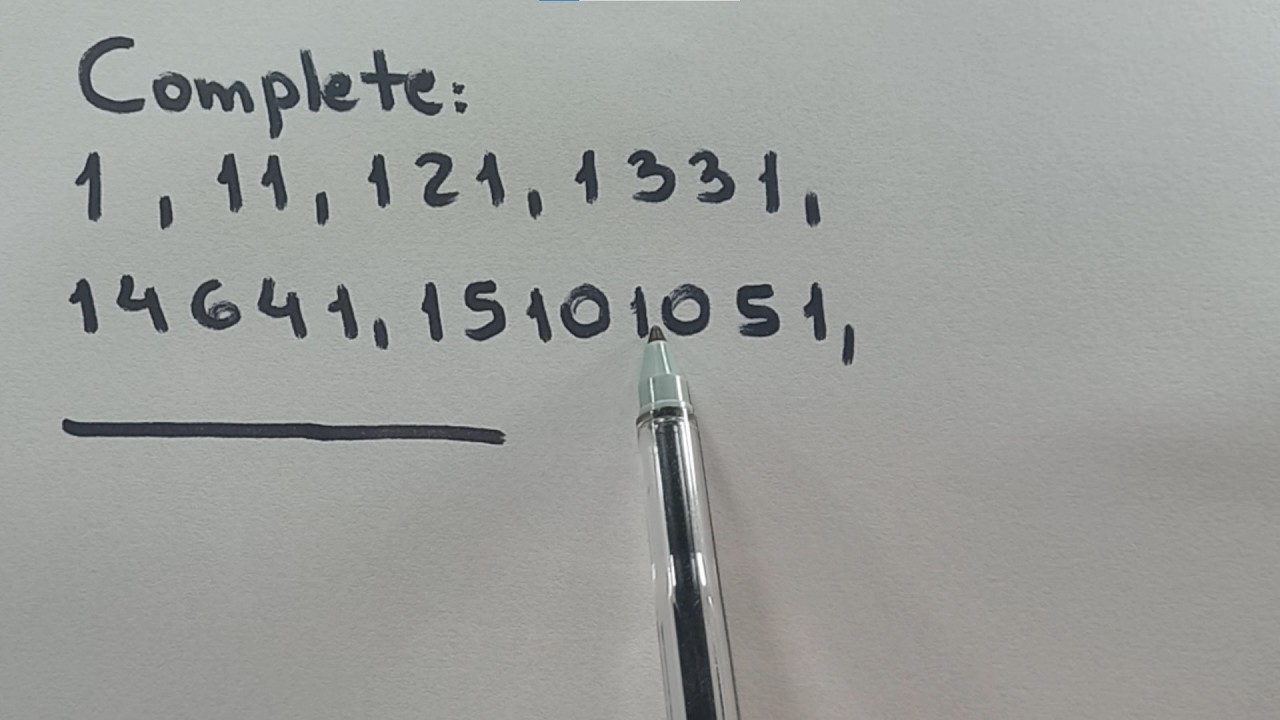 Complete:
1, 11, 121, 1331,
14641, 15101051,